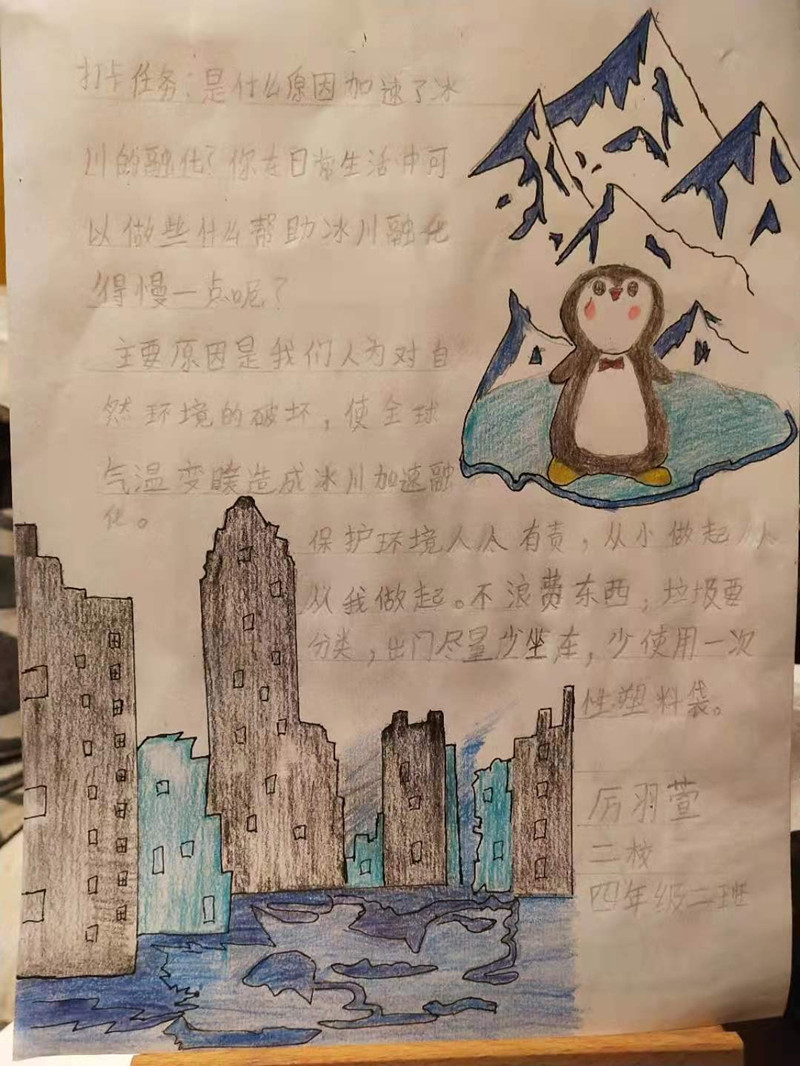 打卡任务：是什么原因加速了冰
川的融化？你在日常生活中可
以做些什么帮助冰川融化
得慢一点呢？
主要原因是我们人为对自
然环境的破坏，使全球
气温变暖造成冰川加速融
化。
保护环境人人有责，从小做起
从我做起。不浪费东西，垃圾要
分类，出门尽量少坐车，少使用一次
性塑料袋。
厉羽萱
二校
四年级二班